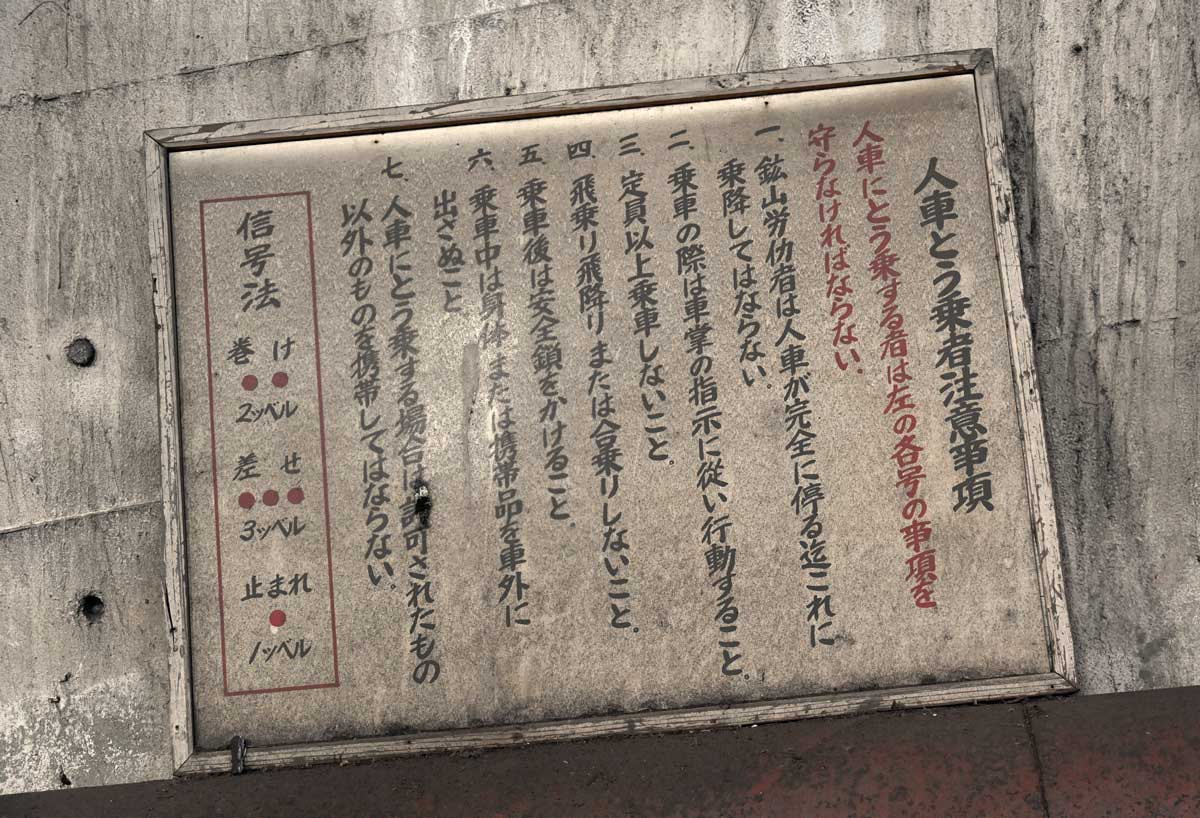 人車とう乗者注意事項
人車にとう乗する者は左の各号の事項を
守らなければならない。
一、鉱山労仂者は人車が完全に停る迄これに
乗降してはならない。
二、乗車の際は車掌の指示に従い行動すること。
三、定員以上乗車しないこと。
四、飛乗り飛降りまたは合乗りしないこと。
五、乗車後は安全鎖をかけること。
六、乗車中は身体または携帯品を車外に
出さぬこと
七、人車にとう乗する場合は許可されたもの
以外のものを携帯してはならない。
信号法
巻け
2ッベル
差せ
3ッベル
止まれ
1ッベル